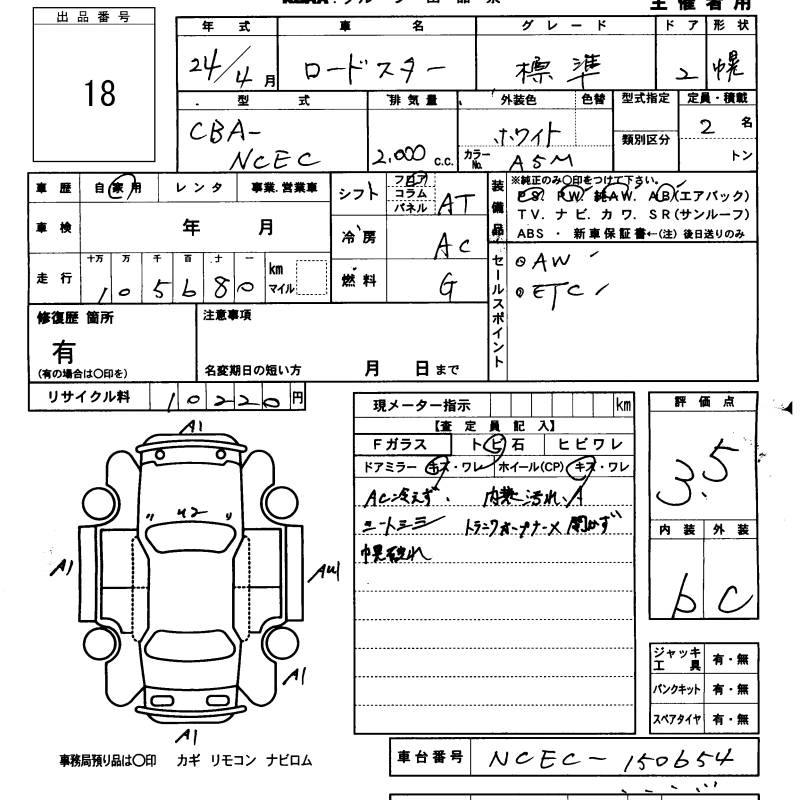 出品番号
18
主催者用
年式 車名 グレード ドア 形状
24/4月 ロードスター 標準 2 幌
型式 排気量 外装色 色替 型式指定 定員・積載
CBA-NCEC 2,000 c.c. ホワイト カラーNo. A5M 類別区分 2名 トン
車歴 自家用 レンタ 事業.営業車
車検 年 月
走行 十万 万 千 百 十 一 km マイル
105680
シフト フロア コラム パネル AT
冷房 AC
燃料 G
装備品 ※純正のみ〇印をつけて下さい。
PS. PW. 純AW. AB(エアバック)
TV. ナビ. カワ. SR(サンルーフ)
ABS ・ 新車保証書←(注) 後日送りのみ
セールスポイント
◎AW
◎ETC
修復歴 箇所
有
(有の場合は〇印を)
注意事項
名変期日の短い方 月 日まで
リサイクル料 10220円
現メーター指示 km
【査定員記入】
Fガラス トビ石 ヒビワレ
ドアミラー キズ・ワレ ホイール(CP) キズ・ワレ
AC冷えず、 内装汚れ、A
シートシミ トランクオープナーX 開かず
幌破れ
評価点
3.5
内装 外装
b C
ジャッキ工具 有・無
パンクキット 有・無
スペアタイヤ 有・無
A1
U2
A1
A4
A1
A1
事務局預り品は〇印 カギ リモコン ナビロム
車台番号 NCEC-150654